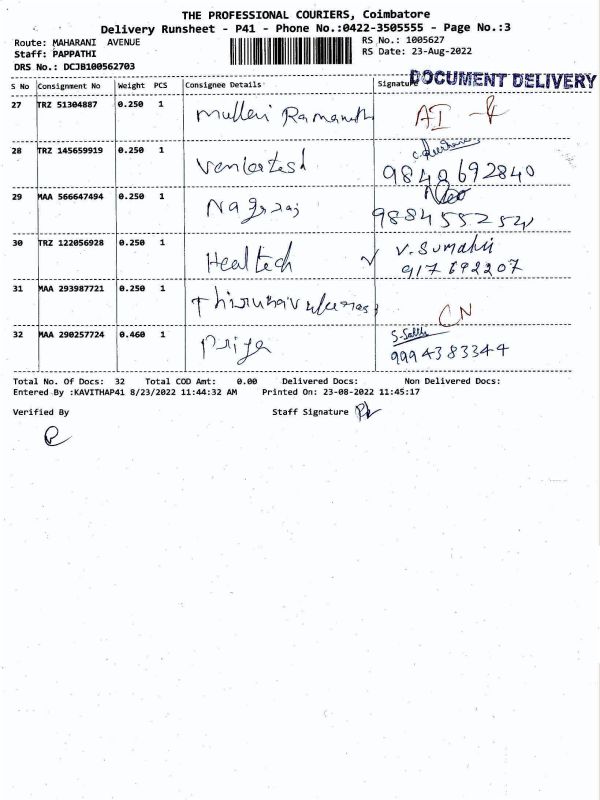 THE PROFESSIONAL COURIERS, Coimbatore
Delivery Runsheet - P41 - Phone No.:0422-3505555 - Page No.:3
Route: MAHARANI AVENUE
RS No.: 1005627
Staff: PAPPATHI
RS Date: 23-Aug-2022
DRS No.: DCJB100562703
DOCUMENT DELIVERY
S No Consignment No Weight PCS Consignee Details Signature
27 TRZ 51304887 0.250 1 AI
28 TRZ 145659919 0.250 1 Venkatesh
29 MAA 566647494 0.250 1 Nagaraj
30 TRZ 122056928 0.250 1 Healtech V. Sumathi
31 MAA 293987721 0.250 1 CN
32 MAA 290257724 0.460 1 Priya
9994383344
Total No. Of Docs: 32 Total COD Amt: 0.00 Delivered Docs: Non Delivered Docs:
Entered By :KAVITHAP41 8/23/2022 11:44:32 AM Printed On: 23-08-2022 11:45:17
Verified By Staff Signature